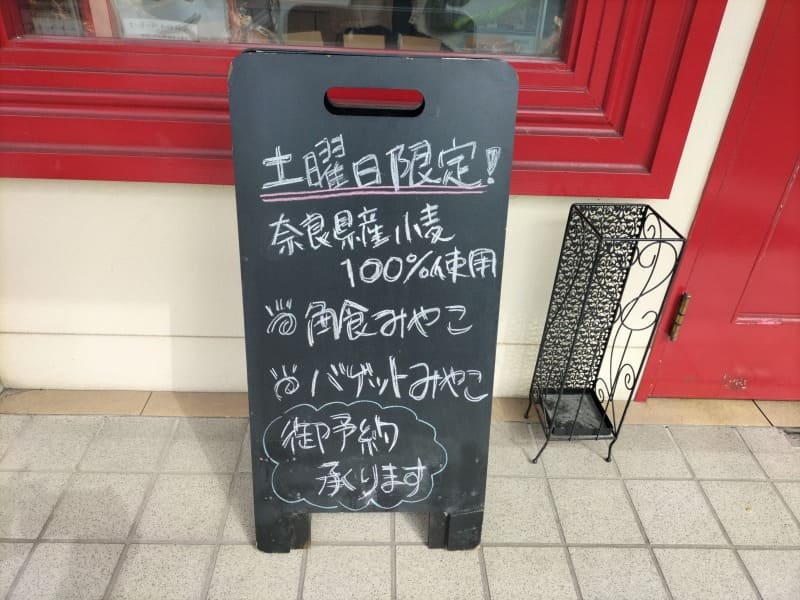 土曜日限定!
奈良県産小麦
100%使用
角食みやこ
バゲットみやこ
御予約
承ります